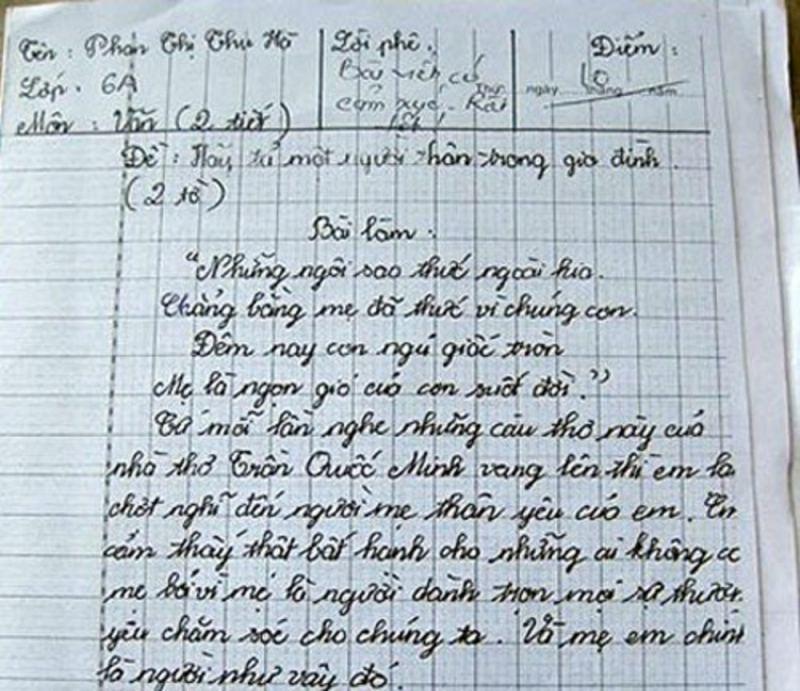 Tên : Phan Thị Thu Hà
Lớp : 6A
Môn : Văn (2 tiết)
Lời phê :
Bài viết có
cảm xúc. Rất
tốt !
Thứ
Điểm :
ngày tháng năm
Đề : Hãy tả một người thân trong gia đình.
(2 tờ)
Bài làm :
"Những ngôi sao thức ngoài kia.
Chẳng bằng mẹ đã thức vì chúng con.
Đêm nay con ngủ giấc tròn
Mẹ là ngọn gió của con suốt đời."
Cứ mỗi lần nghe những câu thơ này của
nhà thơ Trần Quốc Minh vang lên thì em lạ
chợt nghĩ đến người mẹ thân yêu của em. Em
cảm thấy thật bất hạnh cho những ai không có
mẹ bởi vì mẹ là người dành trọn mọi sự thương
yêu chăm sóc cho chúng ta. Và mẹ em chính
là người như vậy đó.